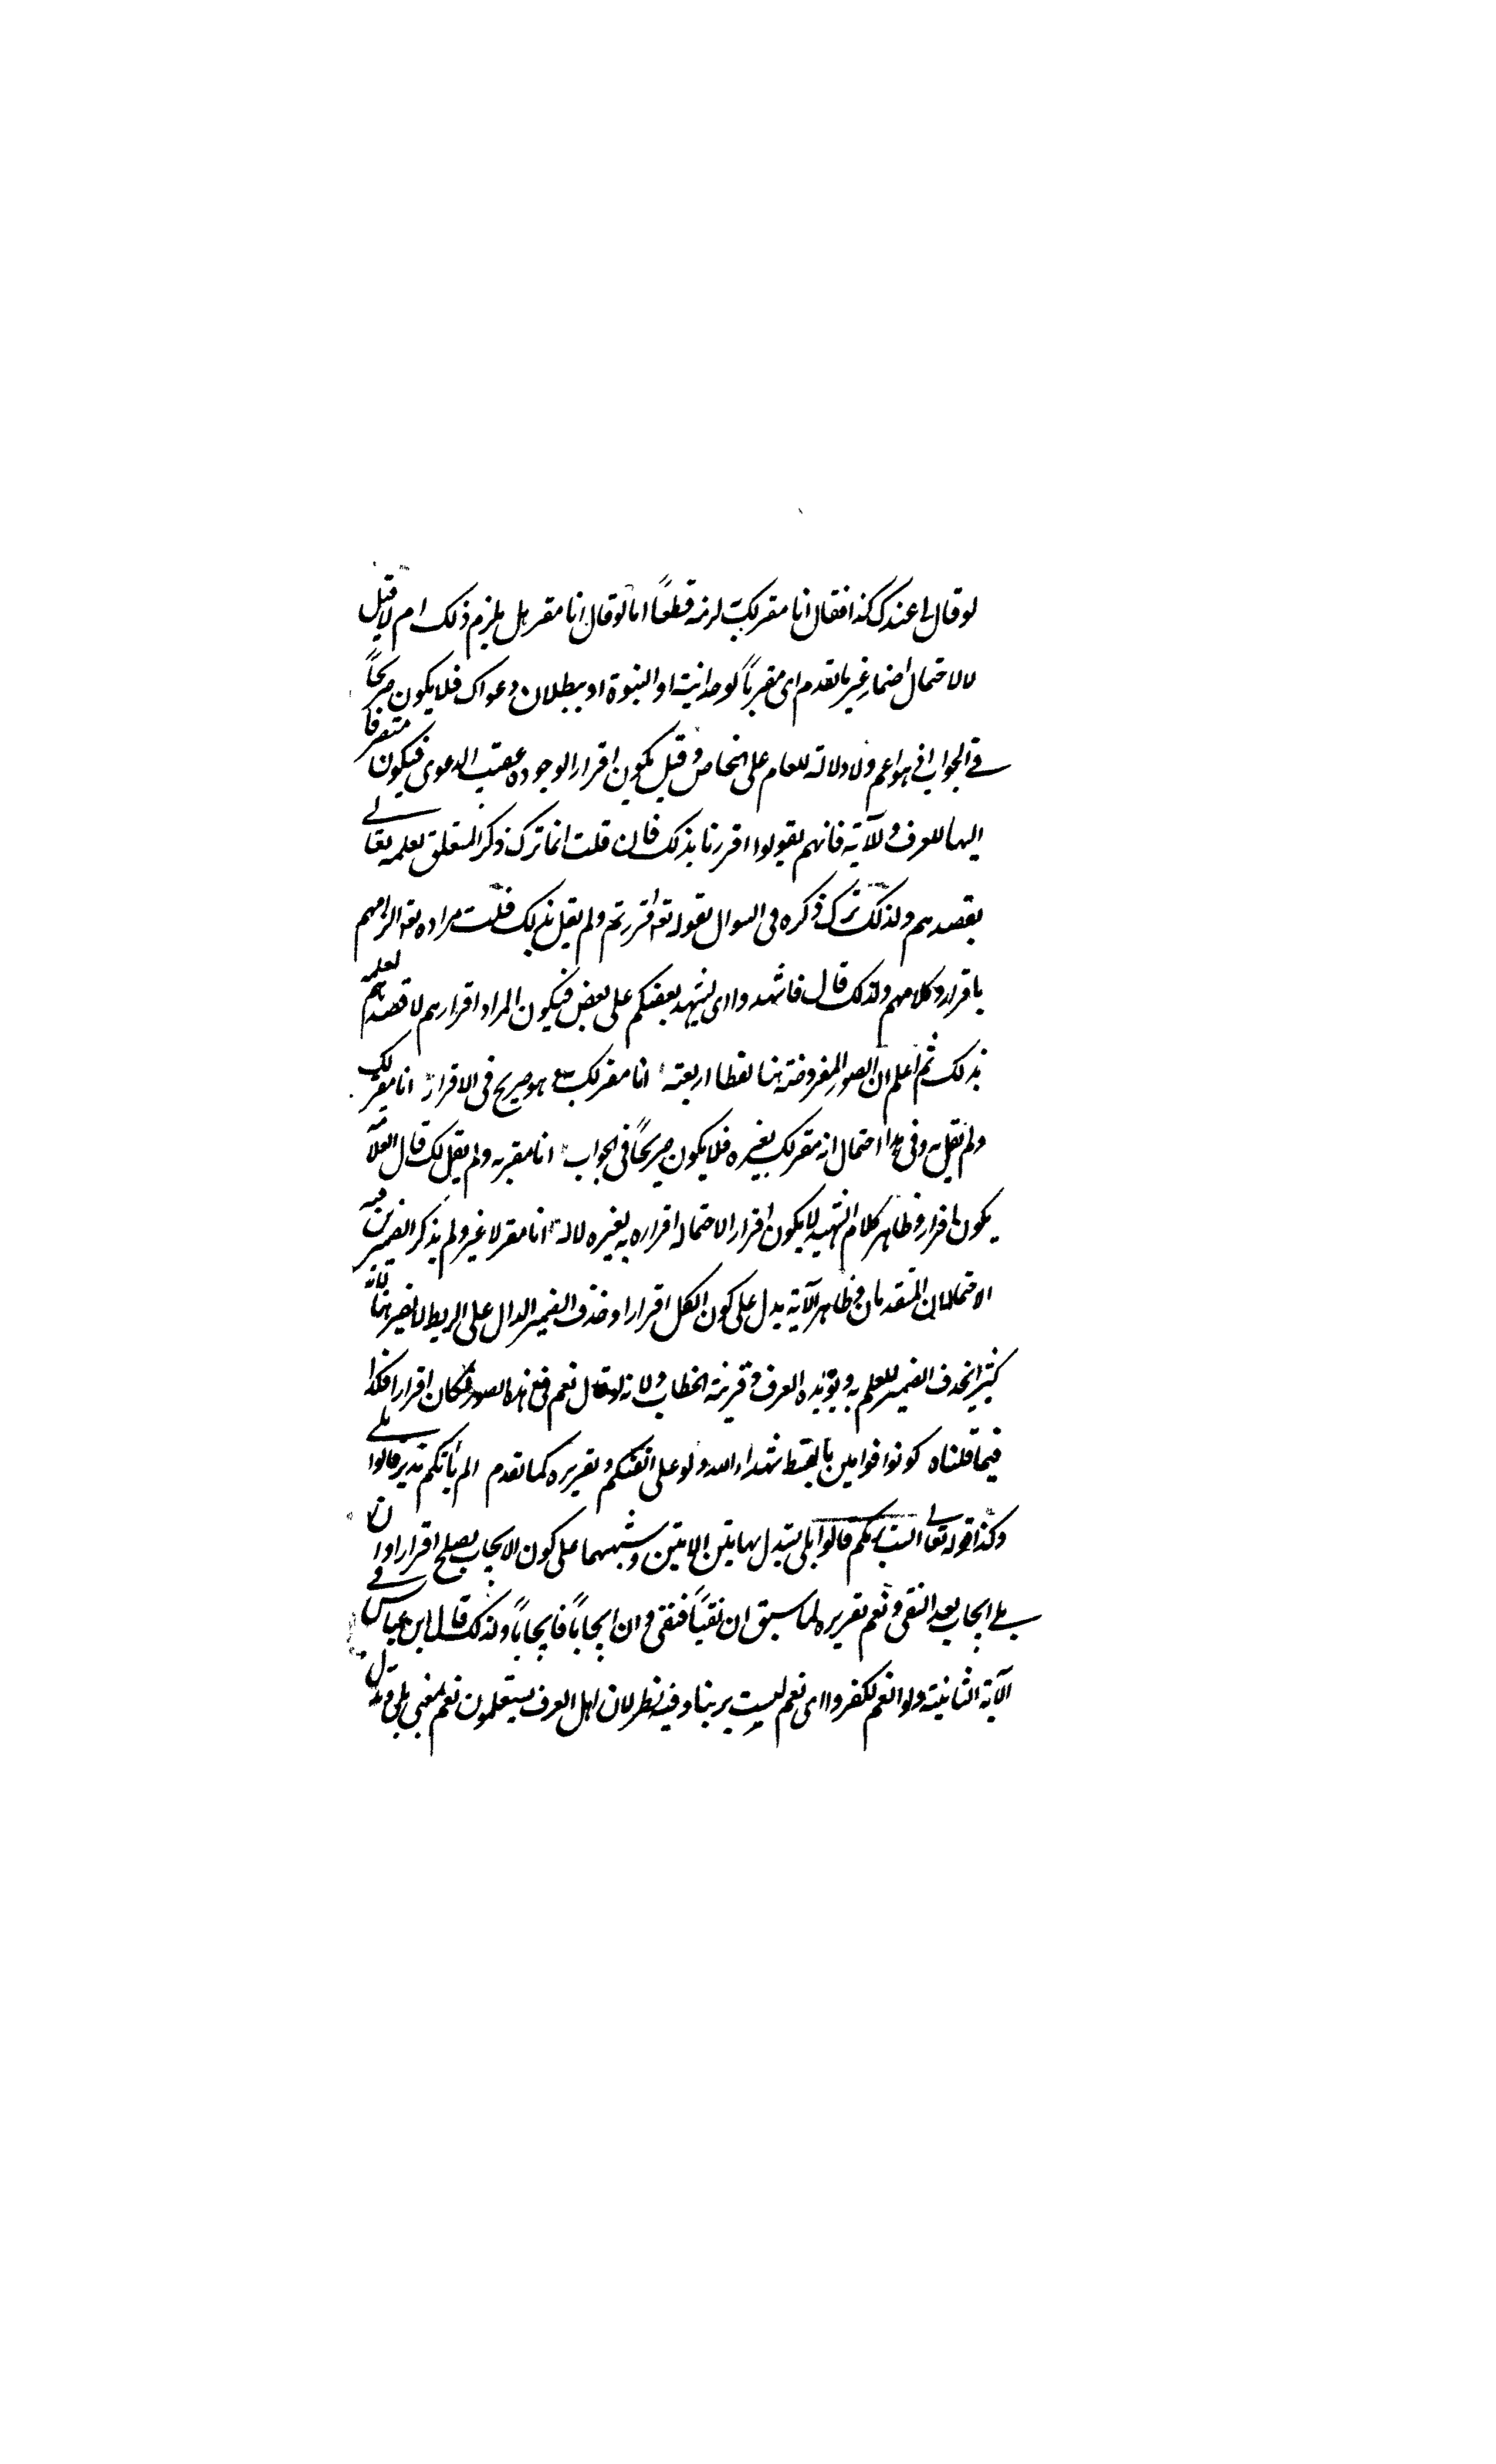 لو قال لى عندك كذا فقال انا مقر لك به لزمه قطعاً اما لو قال انا مقر هل يلزم ذلك ام لا قيل
لا لاحتمال اضمار غير ما تقدم اى مقر بالوحدانية او النبوة او ببطلان دعواك فلا يكون صريحاً
فى الجواب اذ هو اعم ولا دلالة للعام على الخاص و قيل يكون اقرارا لوجوده عقيب الدعوى فيكون متصرفا
اليها للعرف و للآية فانهم لم يقولوا اقررنا بذلك فان قلت انما ترك ذكر المتعلق لعلمه تعالى
بقصدهم ولذلك ترك ذكره فى السوال بقوله تعه ءاقررتم ولم يقل بذلك قلت مراده تعه الزامهم
باقرار و كلامهم ولذلك قال فاشهدوا اى ليشهد بعضكم على بعض فيكون المراد اقرارهم لا قصدهم لعلمه
بذلك ثم اعلم ان الصور المفروضة هنا لفظا اربعة انا مقر لك به هو صريح فى الاقرار انا مقر لك
ولم يقل به و فى هذا احتمال انه مقر لك بغيره فلا يكون صريحاً فى الجواب انا مقر به ولم يقل لك قال العلامة
يكون اقرار و ظاهر كلام الشهيد لا يكون اقرارا لاحتماله اقراره به لغيره لا له انا مقر لا غير ولم يذكر الضميرين فيه
الاحتمالان المتقدمان و ظاهر الآية يدل على كون الكل اقرارا و حذف الضمير الدال على الربط لا يضر هنا فانه
كثيرا يحذف الضمير للعلم به و يؤيده العرف و قرينة الخطاب ولانه لو قال نعم فى هذه الصور لكان اقرارا فكذا
فيما قلناه كونوا قوامين بالقسط شهداء لله ولو على انفسكم و تقريره كما تقدم الم يأتكم نذير قالوا بلى
وكذا قوله تعالى الست بربكم قالوا بلى يستدل بهاتين الايتين و شبههما على كون الايجاب يصلح اقرارا وان
بلى ايجاب بعد النفى و نعم تقريره لما سبق ان نفياً فنفى و ان ايجاباً فايجاباً ولذلك قال ابن عباس فى
الآية الثانية ولو انعم لكفروا اى نعم ليست بربنا و فيه نظر لان اهل العرف يستعملون نعم بمعنى بلى و قيل